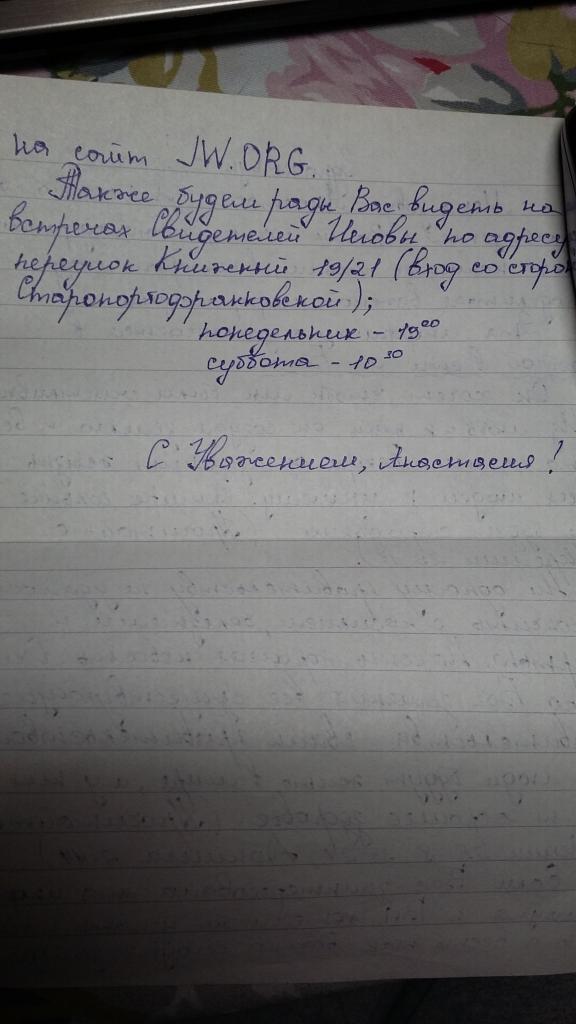 на сайт JW.ORG.
Также будем рады Вас видеть на
встречах Свидетелей Иеговы по адресу
переулок Книжный 19/21 (вход со сторон
Старопортофранковской);
понедельник - 19⁰⁰
суббота - 10³⁰
С Уважением, Анастасия!